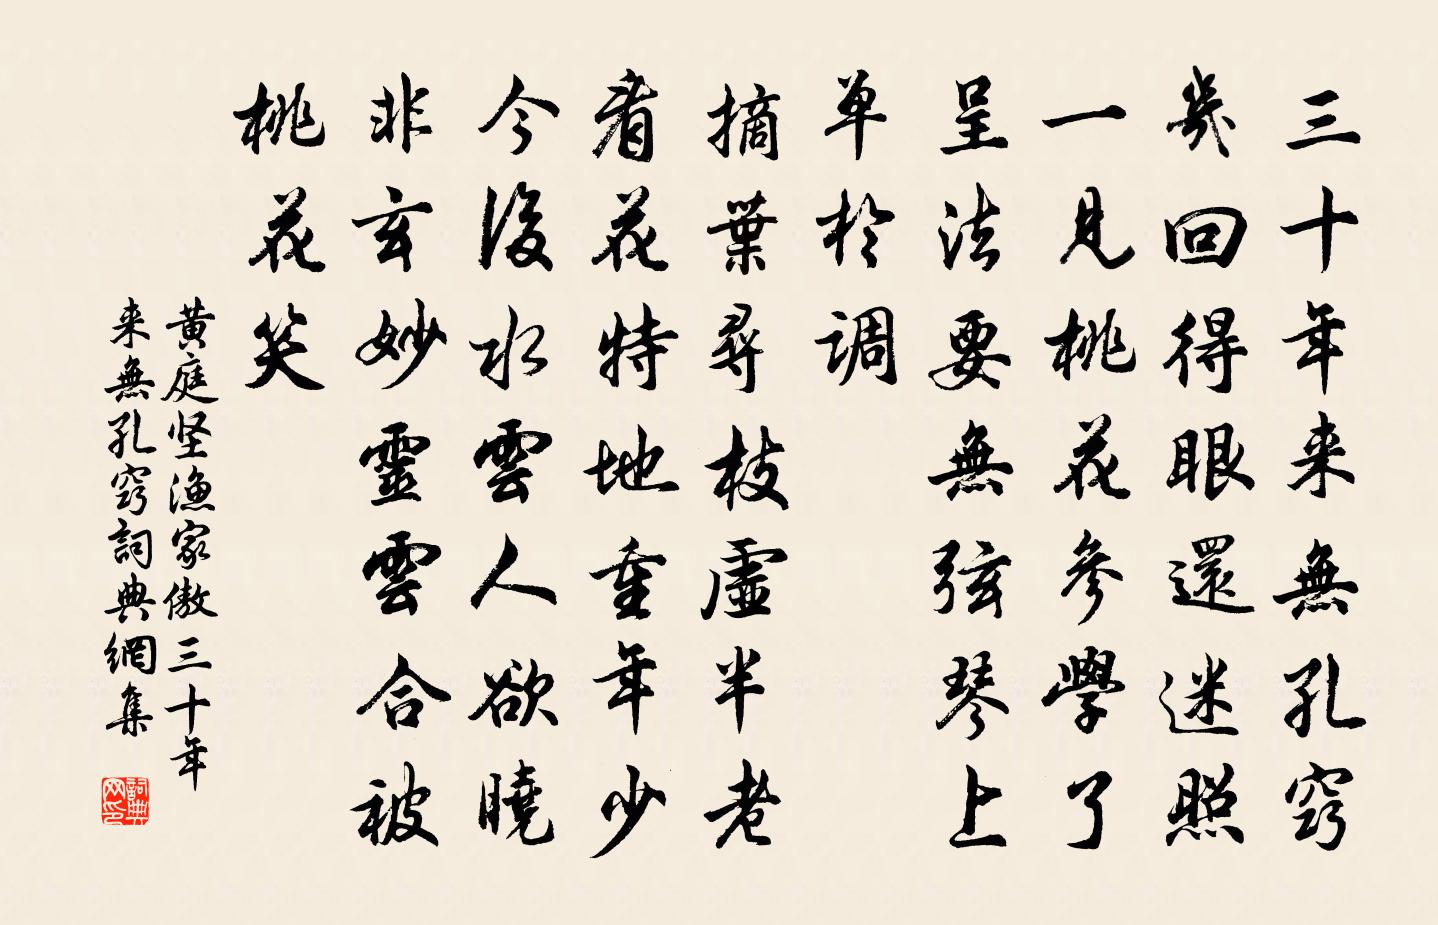 三十年来無孔窍
幾回得眼還迷照
一見桃花参學了
呈法要無弦琴上
单於调
摘葉尋枝虚半老
看花特地重年少
今後水雲人欲曉
非玄妙靈雲合被
桃花笑
黄庭坚渔家傲三十年
来無孔窍詞典網集
詞典网印